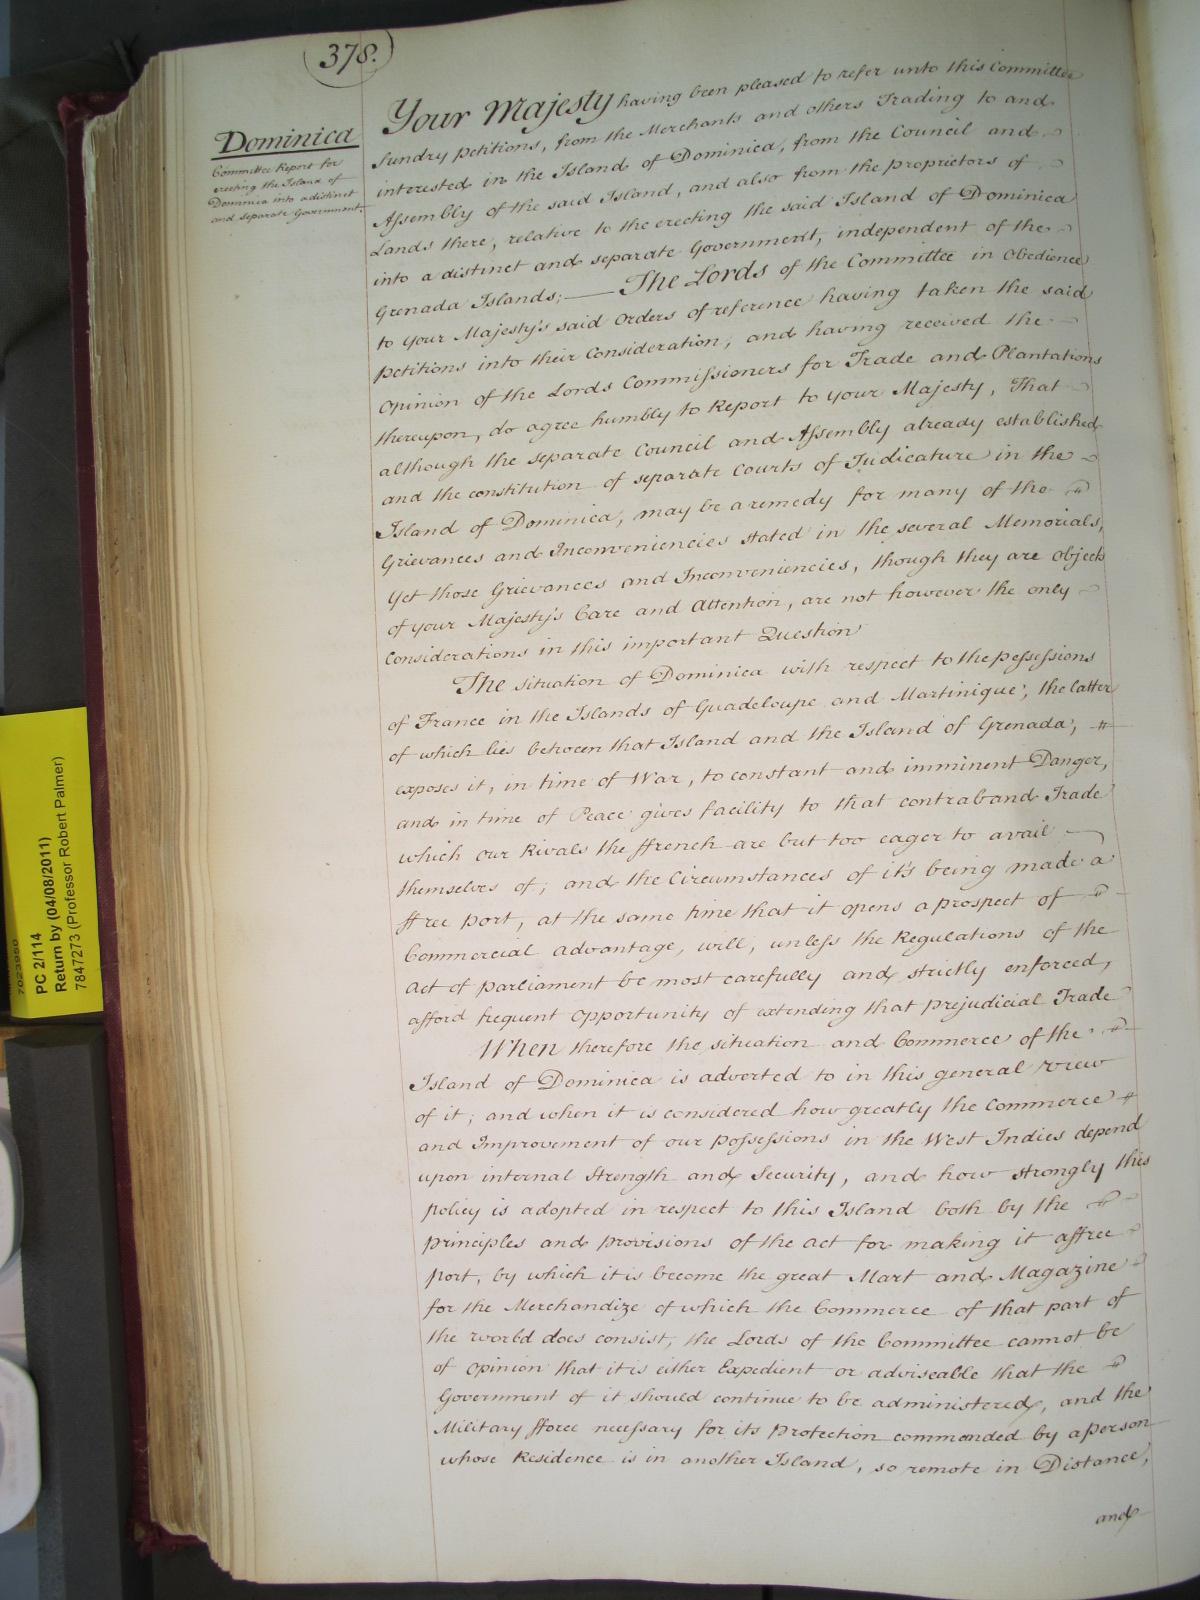 378.
Dominica
Committee Report for
erecting the Island of
Dominica into a distinct
and separate Government.
Your Majesty having been pleased to refer unto this Committee
sundry petitions, from the Merchants and others Trading to and
interested in the Island of Dominica, from the Council and
Assembly of the said Island, and also from the proprietors of
Lands there, relative to the erecting the said Island of Dominica
into a distinct and separate Government, independent of the
Grenada Islands; — The Lords of the Committee in Obedience
to your Majesty's said Orders of reference having taken the said
petitions into their Consideration, and having received the
Opinion of the Lords Commissioners for Trade and Plantations
thereupon, do agree humbly to Report to your Majesty, That
although the separate Council and Assembly already established
and the constitution of separate Courts of Judicature in the
Island of Dominica, may be a remedy for many of the
Grievances and Inconveniencies stated in the several Memorials,
yet those Grievances and Inconveniencies, though they are objects
of your Majesty's Care and Attention, are not however the only
Considerations in this important Question
The situation of Dominica with respect to the possessions
of France in the Islands of Guadeloupe and Martinique, the latter
of which lies between that Island and the Island of Grenada,
exposes it, in time of War, to constant and imminent Danger,
and in time of Peace gives facility to that contraband Trade
which our Rivals the ffrench are but too eager to avail
themselves of; and the Circumstances of it's being made a
ffree port, at the same time that it opens a prospect of
Commercial advantage, will, unless the Regulations of the
Act of parliament be most carefully and strictly enforced,
afford frequent opportunity of extending that prejudicial Trade
When therefore the situation and Commerce of the
Island of Dominica is adverted to in this general view
of it; and when it is considered how greatly the Commerce
and Improvement of our possessions in the West Indies depend
upon internal strength and Security, and how strongly this
policy is adopted in respect to this Island both by the
principles and provisions of the act for making it a ffree
port, by which it is become the great Mart and Magazine
for the Merchandize of which the Commerce of that part of
the world does consist, the Lords of the Committee cannot be
of opinion that it is either Expedient or adviseable that the
Government of it should continue to be administered, and the
Military fforce necessary for its Protection commended by a person
whose Residence is in another Island, so remote in Distance,
and
PC 2/114
Return by (04/08/2011)
7847273 (Professor Robert Palmer)